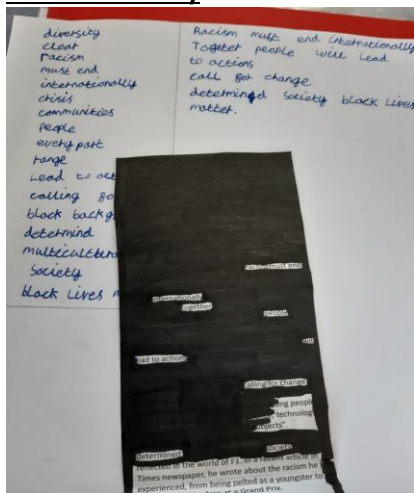 diversity
clear
racism
must end
internationally
crisis
communities
people
every part
range
Lead to act
calling fo
black backg
determind
Society
black Lives m
Racism must end internationally
Togeter people will Lead
to actions
call for change
determined society black Lives
matter.
racism must end
internationally
together
people
will
lead to action
calling for change
ng people
technolog
objects".
determined
society
reflected in the world of F1. In a recent article in
Times newspaper, he wrote about the racism he
experienced, from being pelted as a youngster to
at a Grand Prix.